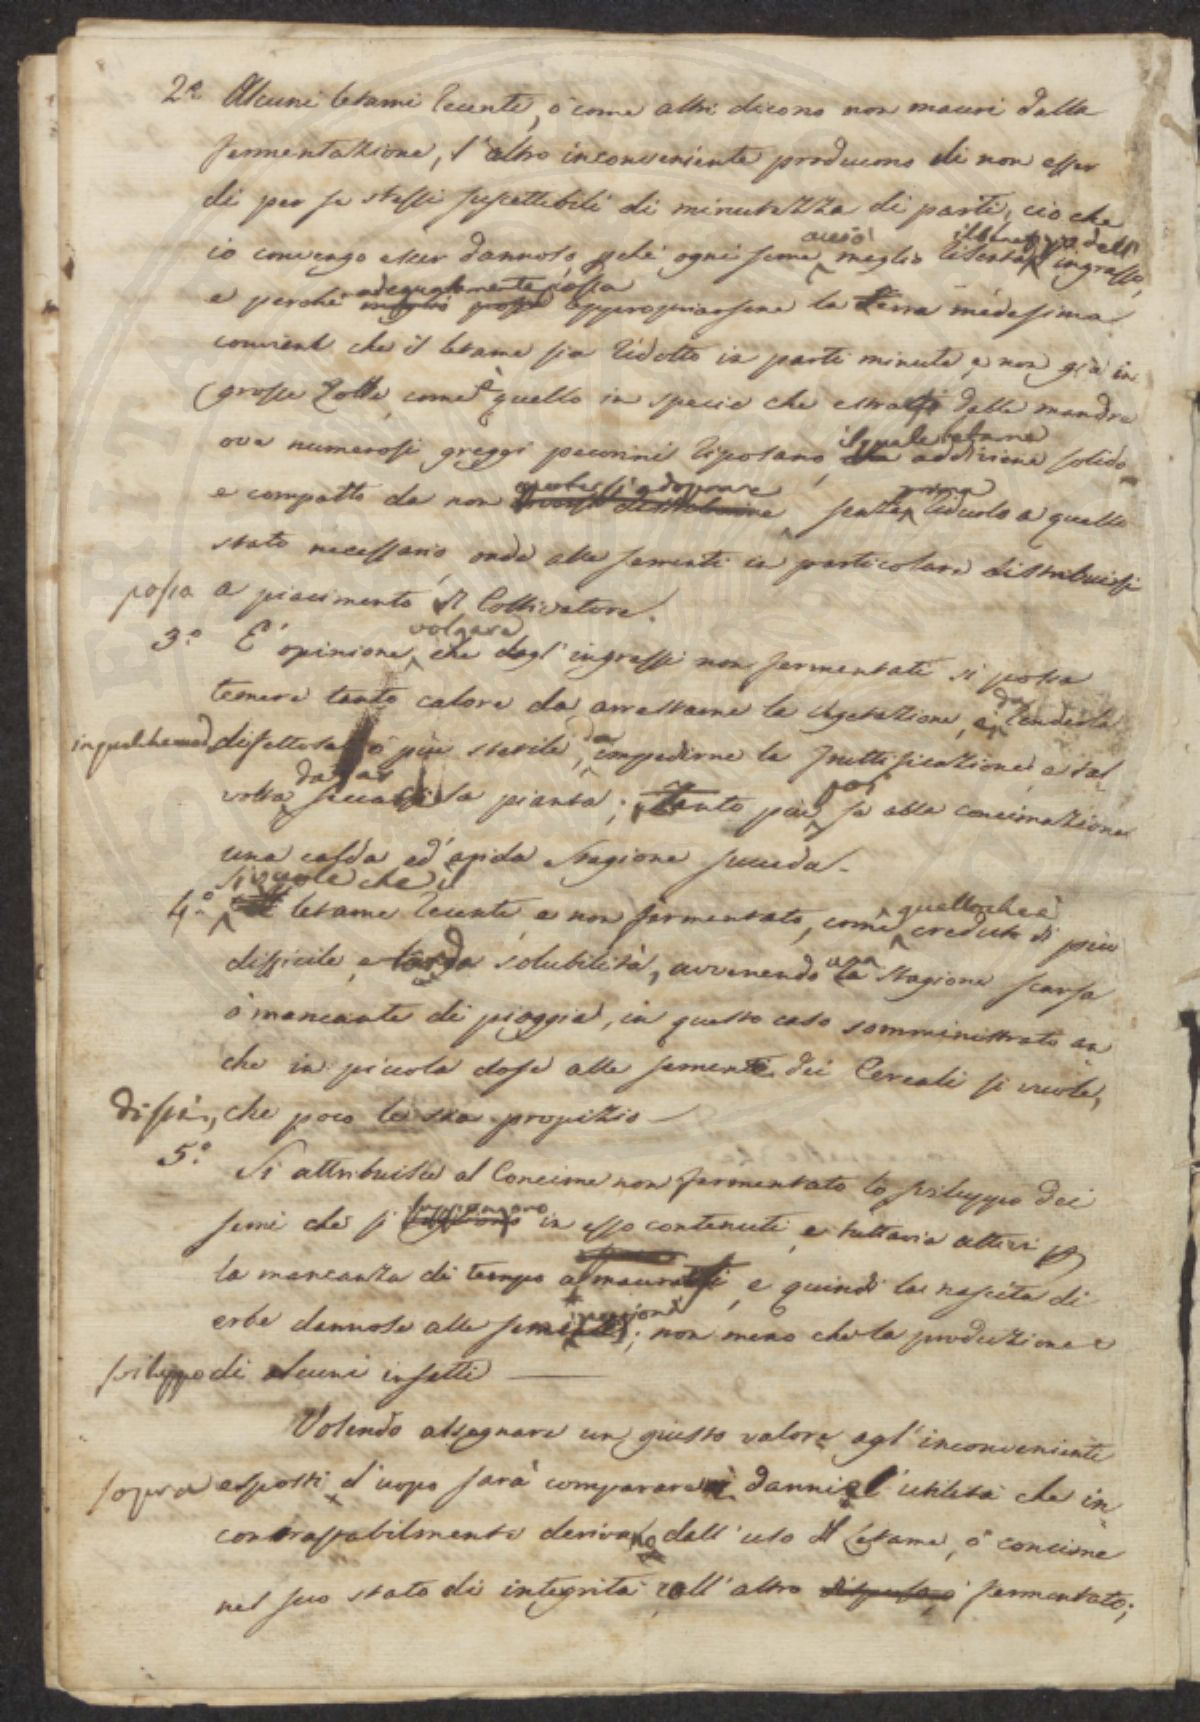 2.° Alcuni letami recenti, o come altri dicono non macri dalla
fermentazione, l'altro inconveniente producono di non esser
di per se stessi suscettibili di minutezza di parti, ciò che
io convengo esser dannoso, pchè ogni seme acciò meglio risenta dell'ingrasso,
e perchè adeguatamente possa appropriarsene la terra medesima
convient che il letame sia ridotto in parti minute, e non già in
grosse zolle, come è quello in specie che estratto dalle mandre
ove numerosi greggi pecorini riposano, il quale letame addiviene solido
e compatto da non potersi adoprare, senza prima ridurlo a quello
stato necessario, onde alle sementi in particolare distribuirsi
possa a piacimento dl Coltivatore.
3.° E' opinione volgare che dagl'ingrassi non fermentati si possa
temere tanto calore da arrestarne la vegetazione, e da renderla
in qualche modo difettosa o più sterile, da impedirne la fruttificazione, e tal
volta da far seccare la pianta; tanto più poi se alla concimazione
una calda ed arida stagione succeda.
4.° Si vuole che il letame recente, e non fermentato, come quello che è creduto di più
difficile, e tarda solubilità, avvenendo una stagione scarsa
o mancante di pioggia, in questo caso somministrato an
che in piccola dose alle sementi dei Cereali si vuole,
dissi, che poco le sia propizio —
5.° Si attribuisce al Concime non fermentato lo sviluppo dei
semi che si in esso contenuti, e tuttavia attivi p
la mancanza di tempo a e quindi la nascita di
erbe dannose alle; non meno che la produzione e
sviluppo di alcuni insetti —
Volendo assegnare un giusto valore agl'inconvenienti
sopra esposti, d'uopo sarà comparare i danni e l'utilità che in
contrastabilmente derivano dall'uso dl Letame, o concime
nel suo stato di integrità, coll'altro fermentato;